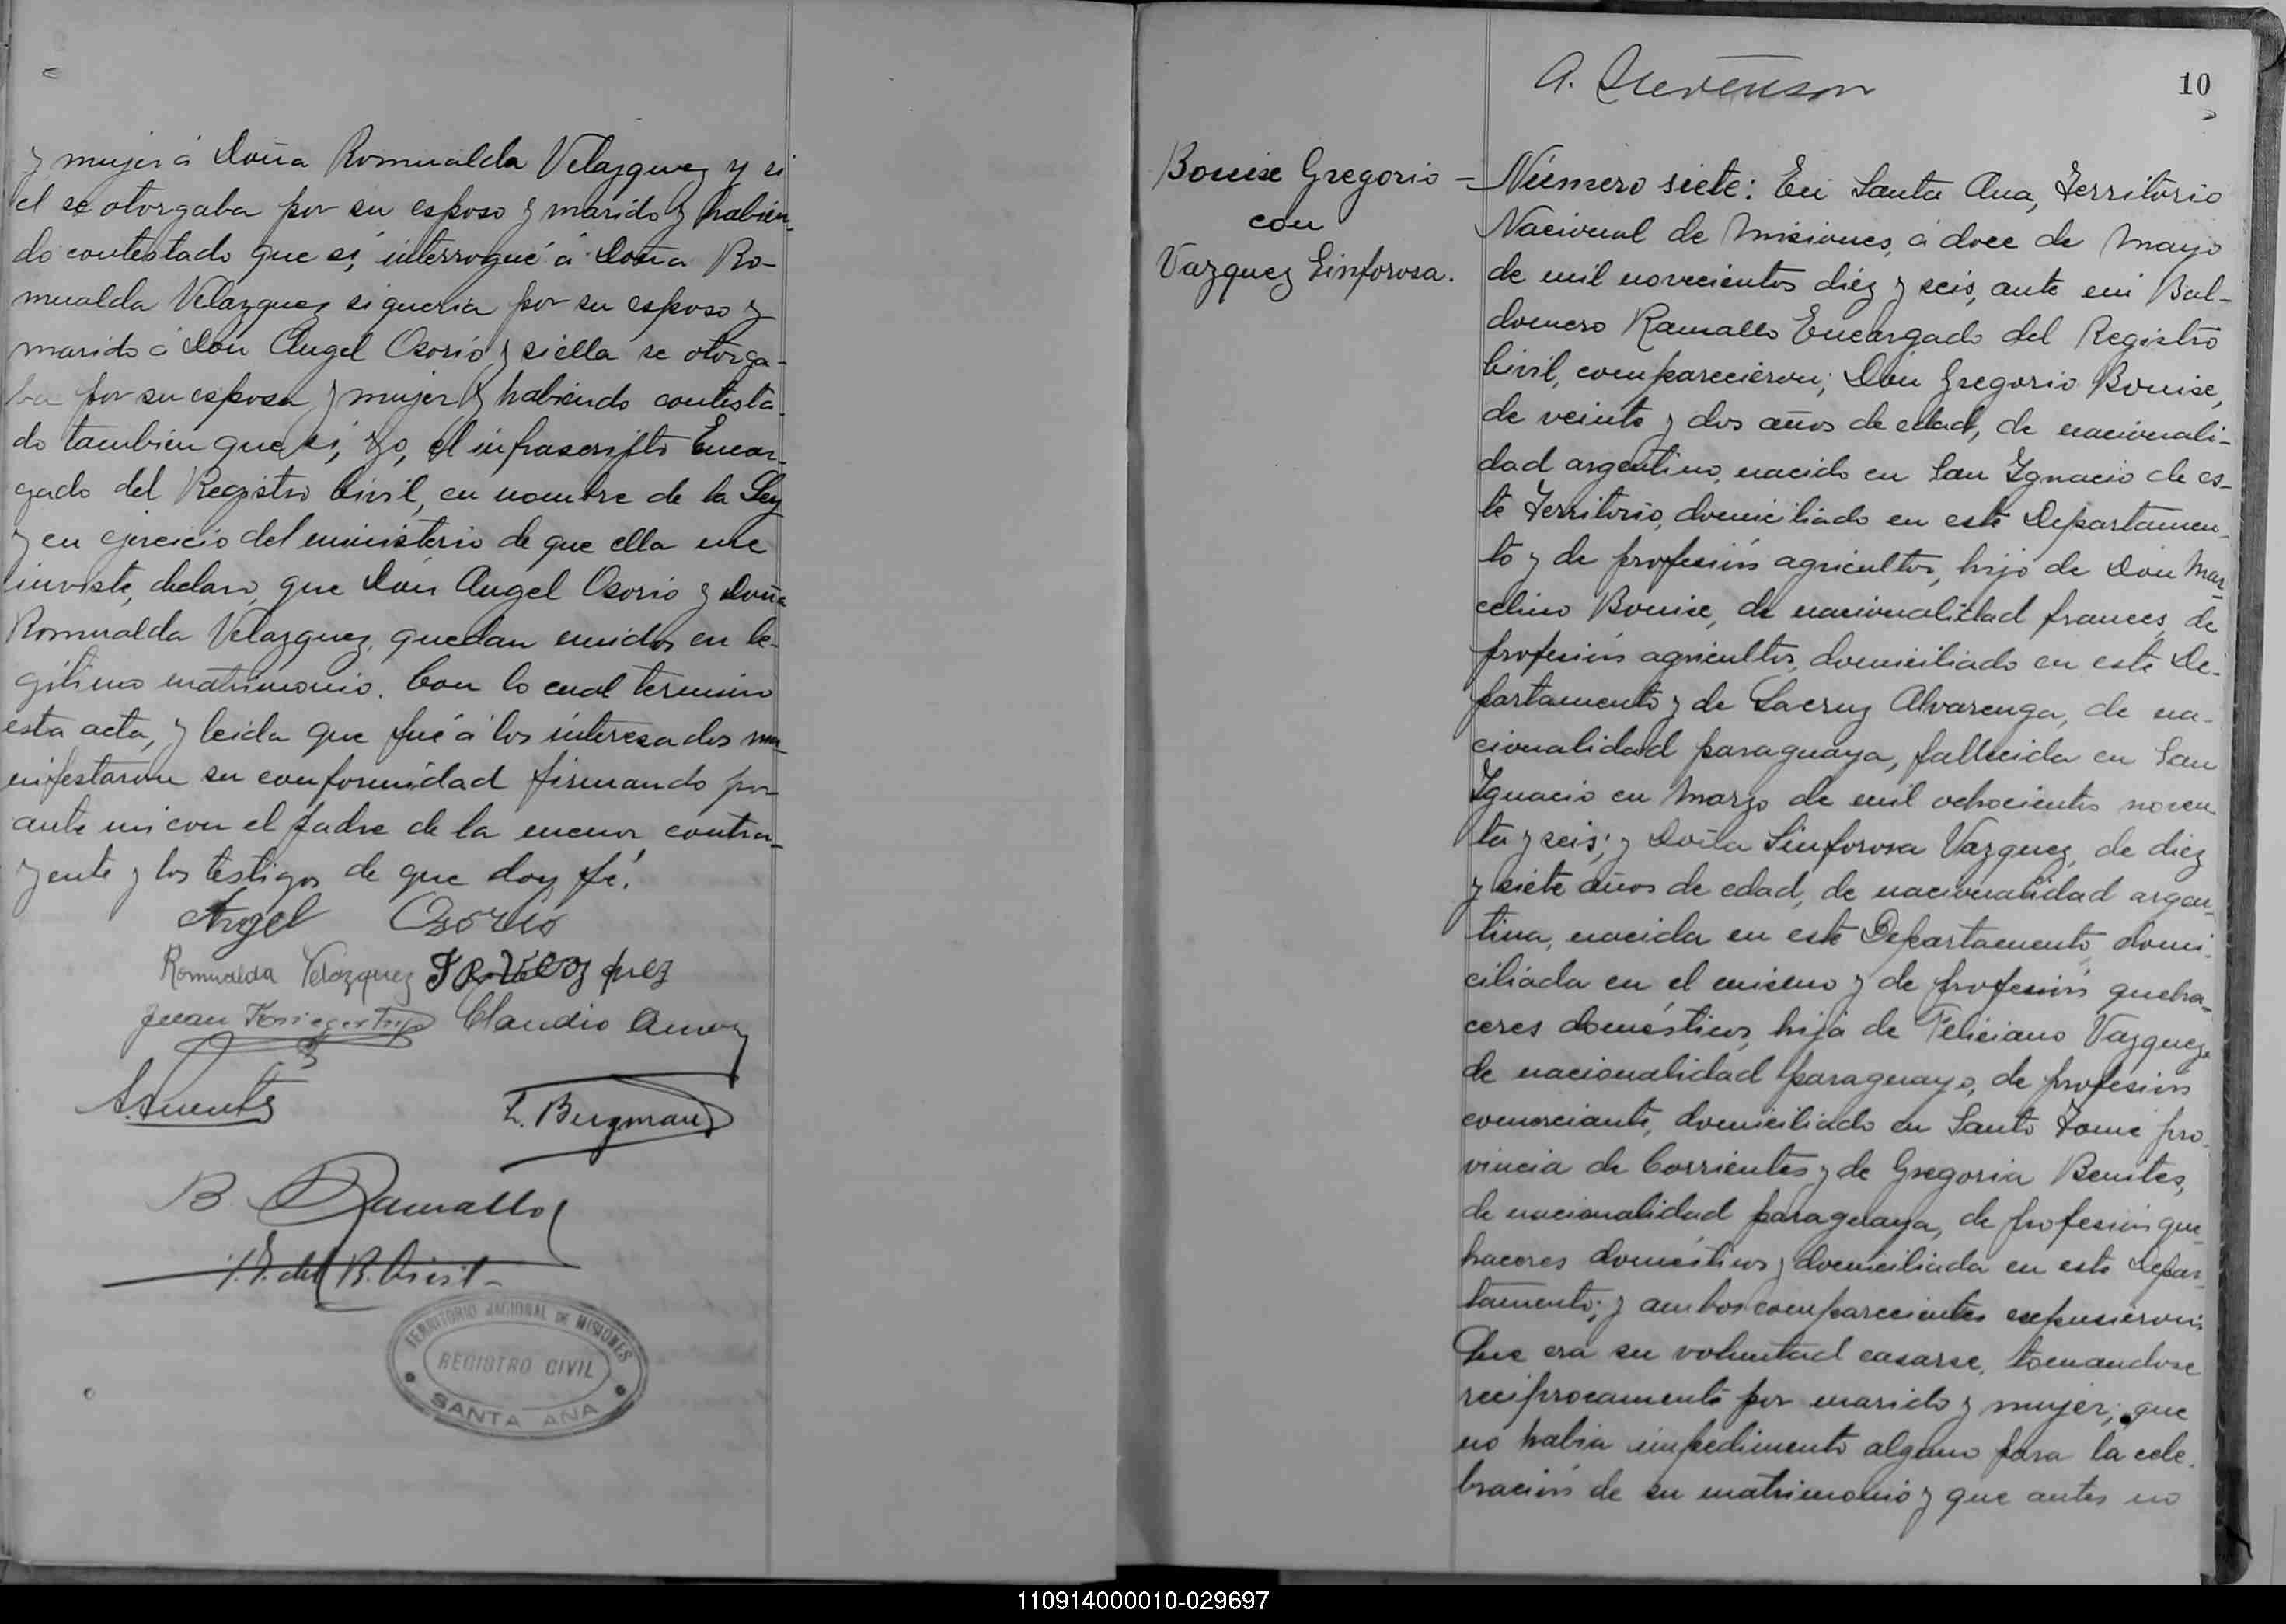 y mujer á Doña Romualda Velazquez y si
el se otorgaba por su esposo y marido y habien-
do contestado que si, interrogué á Doña Ro-
mualda Velazquez si queria por su esposo y
marido á Don Angel Osorio y si ella se otorga-
ba por su esposa y mujer y habiendo contesta-
do tambien que si, yo, el infrascripto Encar-
gado del Registro Civil, en nombre de la Ley
y en ejercicio del ministerio de que ella me
inviste, declaro, que Don Angel Osorio y Doña
Romualda Velazquez, quedan unidos en le-
gitimo matrimonio. Con lo cual termino
esta acta, y leida que fué á los interesados ma-
nifestaron su conformidad firmando por
ante mi con el padre de la menor contra-
yente y los testigos de que doy fé.
Angel Osorio
Romualda Velazquez
Juan Claudio
L. Bergman
B. Ramallo
del R. Civil
TERRITORIO NACIONAL DE MISIONES
REGISTRO CIVIL
SANTA ANA
A. Stevenson
10
Bouise Gregorio -
con
Vazquez Sinforosa.
Número siete: En Santa Ana, Territorio
Nacional de Misiones, á doce de Mayo
de mil novecientos diéz y seis, ante mi Bal-
domero Ramallo Encargado del Registro
Civil, comparecieron; Don Gregorio Bouise,
de veinte y dos años de edad, de nacionali-
dad argentino, nacido en San Ignacio de es-
te Territorio, domiciliado en este Departamen-
to y de profesión agricultor, hijo de Don Mar-
celino Bouise, de nacionalidad frances, de
profesión agricultor, domiciliado en este De-
partamento y de Lacruz Alvarenga, de na-
cionalidad paraguaya, fallecida en San
Ignacio en Marzo de mil ochocientos noven-
ta y seis; y Doña Sinforosa Vazquez, de diez
y siete años de edad, de nacionalidad argen-
tina, nacida en este Departamento, domi-
ciliada en el mismo y de profesión queha-
ceres domésticos, hija de Feliciano Vazquez,
de nacionalidad paraguayo, de profesión
comerciante, domiciliado en Santo Tomé pro-
vincia de Corrientes y de Gregoria Benites,
de nacionalidad paraguaya, de profesión que-
haceres domésticos y domiciliada en este Depar-
tamento; y ambos comparecientes expusieron:
Que era su voluntad casarse, tomandose
reciprocamente por marido y mujer; que
no habia impedimento alguno para la cele-
bración de su matrimonio y que antes no
110914000010-029697